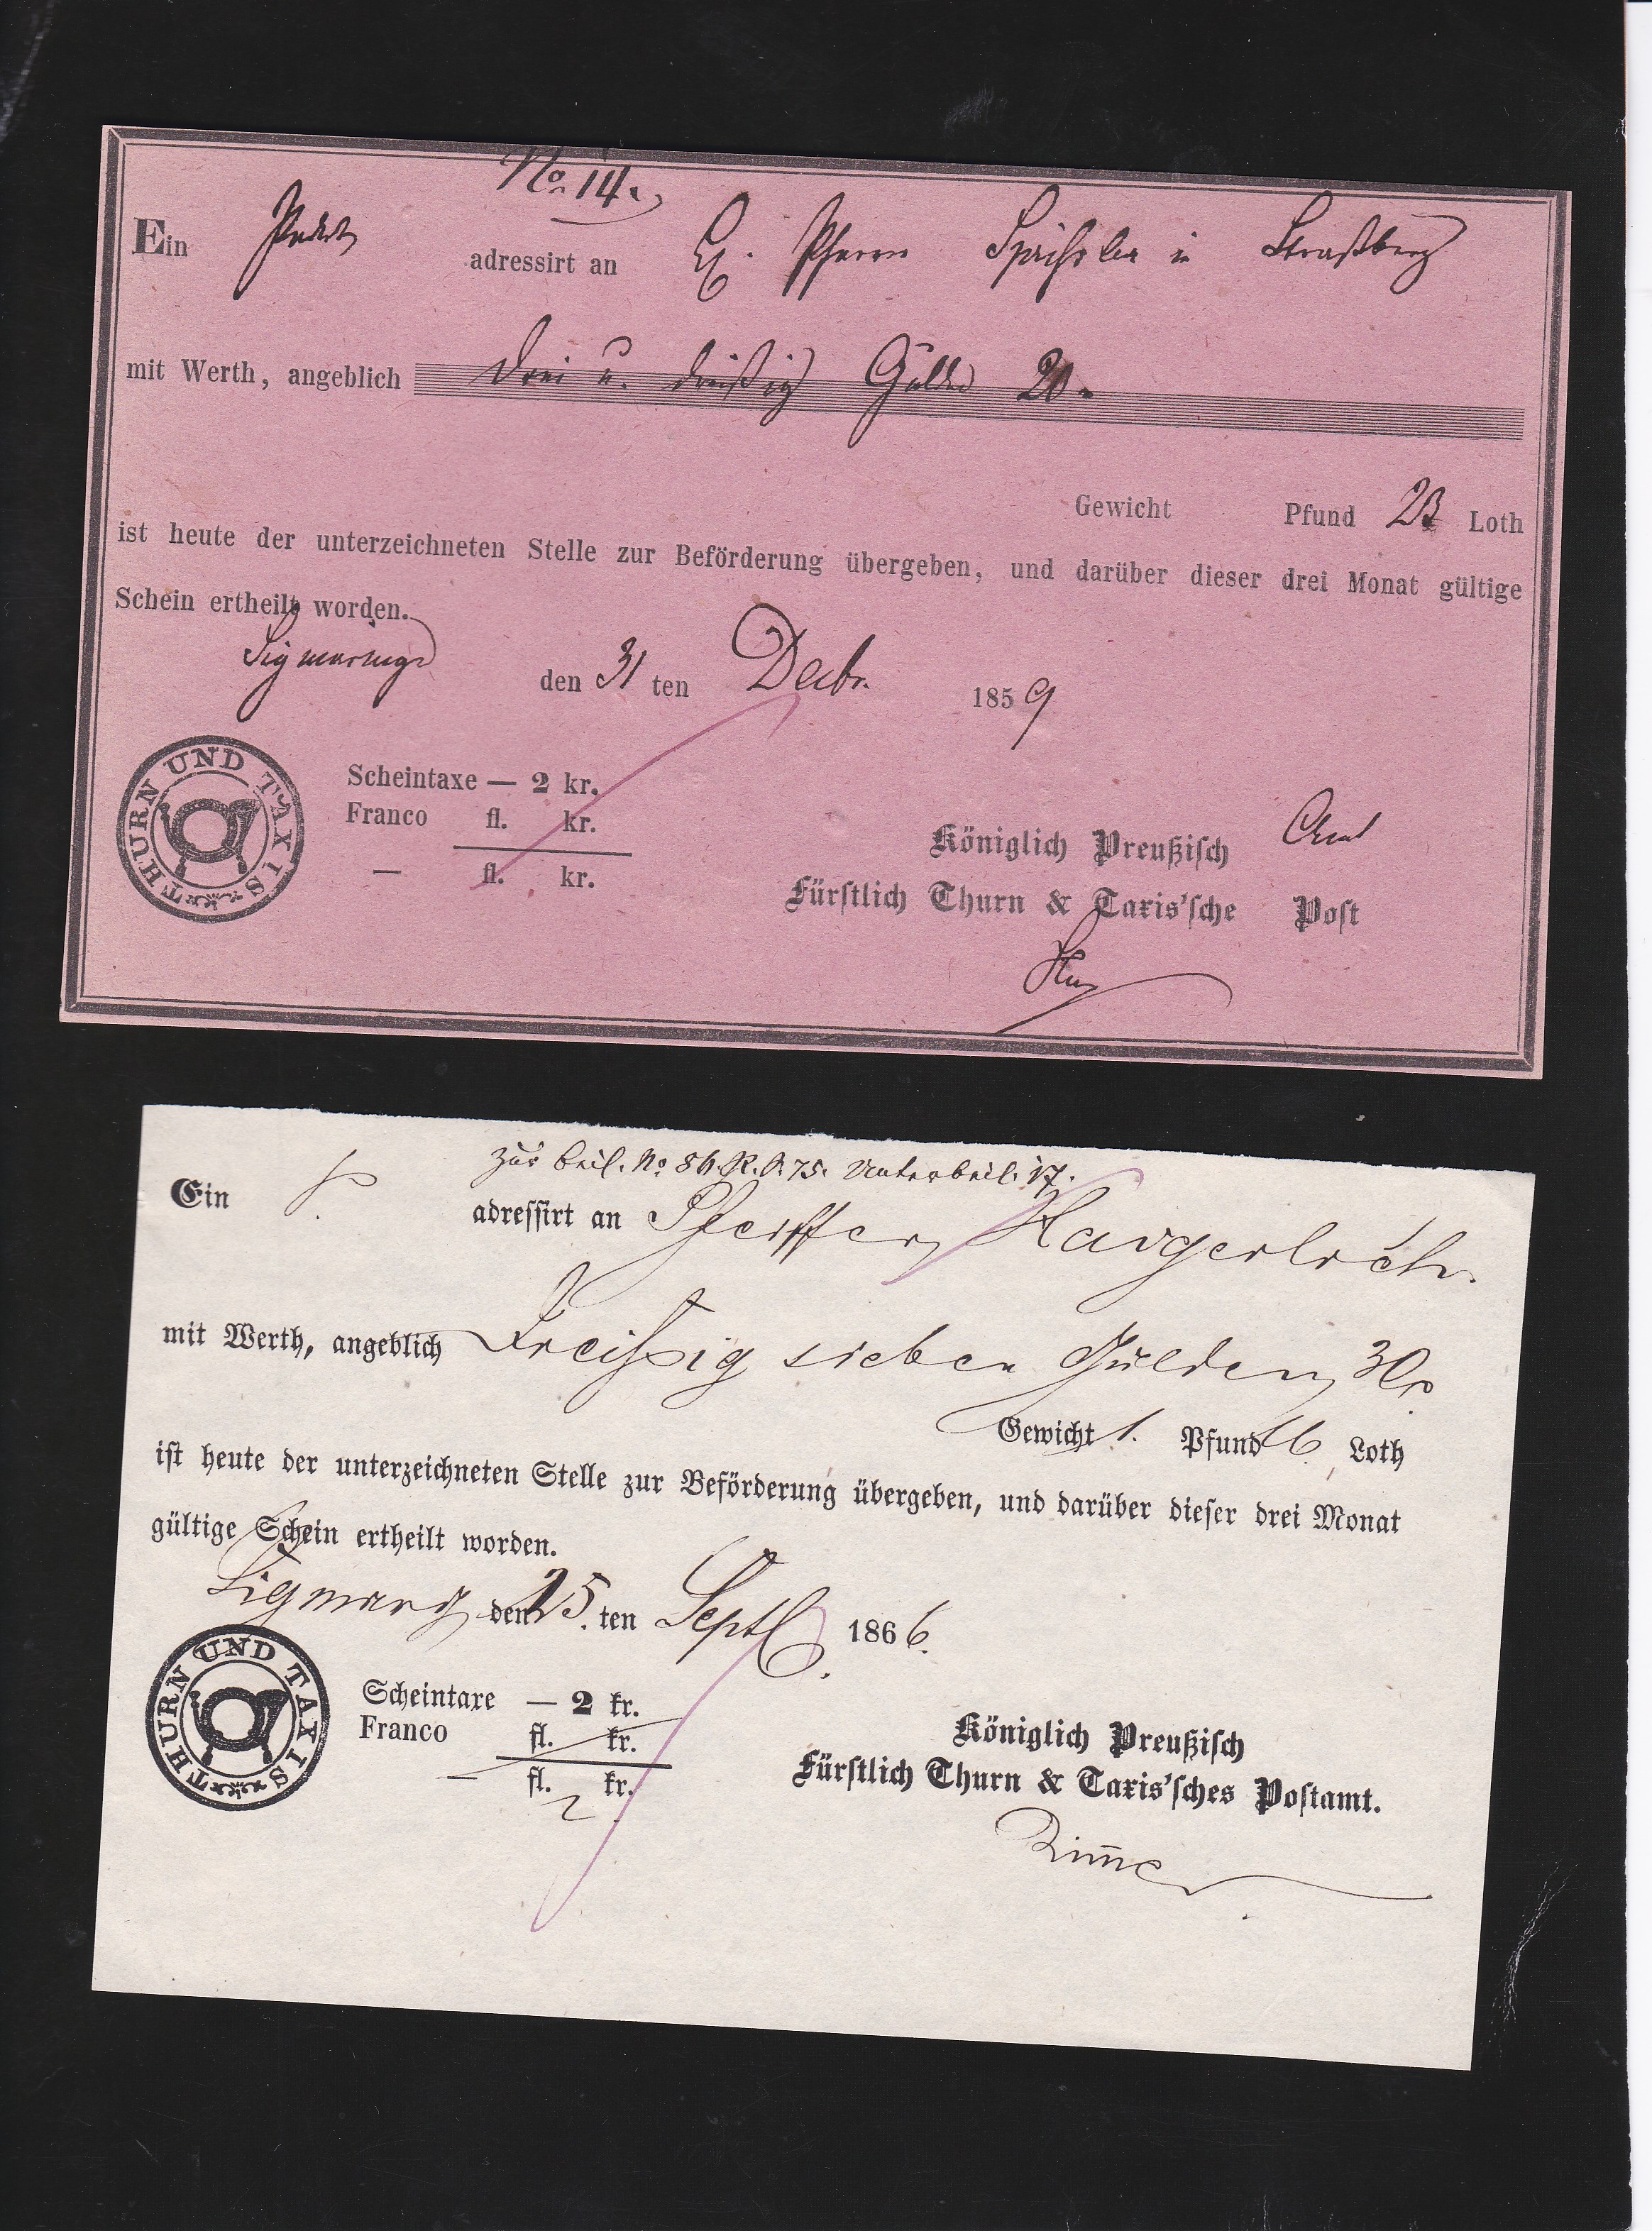 No. 14.
Ein Paket adressirt an H. Pfarrer in Straßberg
mit Werth, angeblich Drei u. dreißig Gulden 20.
Gewicht Pfund 23 Loth
ist heute der unterzeichneten Stelle zur Beförderung übergeben, und darüber dieser drei Monat gültige
Schein ertheilt worden.
den 31 ten Decbr. 1859
THURN UND TAXIS
Scheintaxe — 2 kr.
Franco fl. kr.
— fl. kr.
Königlich Preußisch
Fürstlich Thurn & Taxis'sche Post
zur Beil. No 86. R. P. 75. Unterbeil. 17.
Ein P. adressirt an Pfeiffer, Haigerloch.
mit Werth, angeblich Dreißig sieben Gulden 30
Gewicht 1. Pfund 16 Loth
ist heute der unterzeichneten Stelle zur Beförderung übergeben, und darüber dieser drei Monat
gültige Schein ertheilt worden.
Sigmarg den 25. ten Septb. 1866.
THURN UND TAXIS
Scheintaxe — 2 kr.
Franco fl. kr.
— fl. kr.
2
Königlich Preußisch
Fürstlich Thurn & Taxis'sches Postamt.